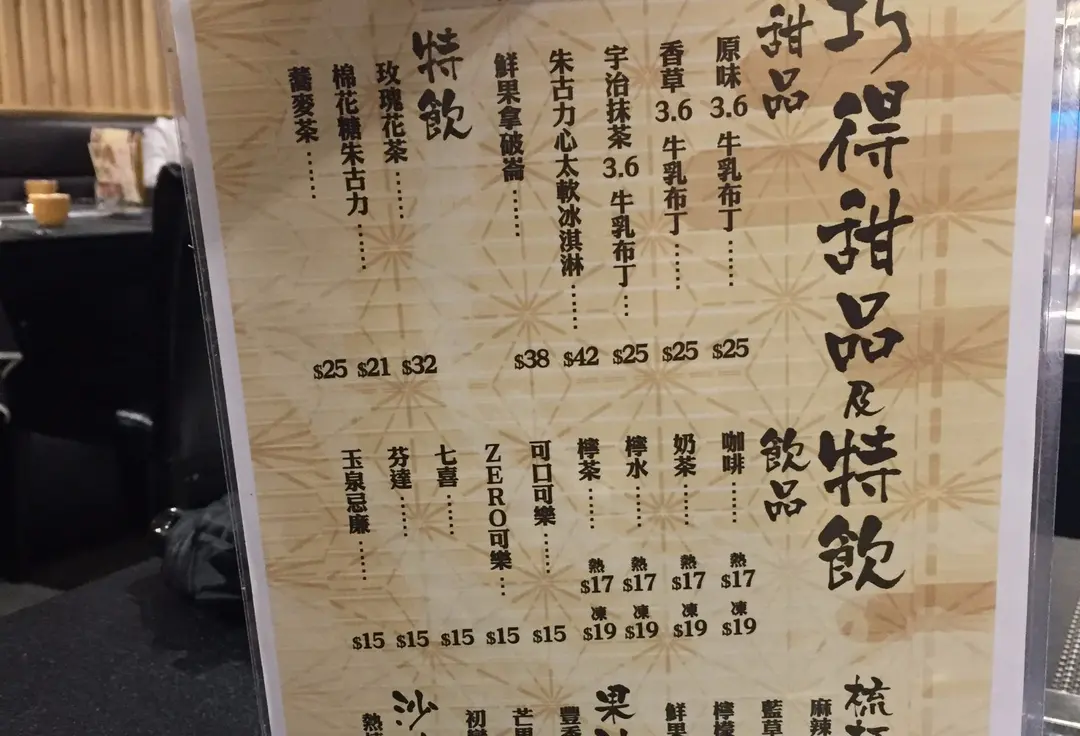 巧得甜品及特飲
甜品
原味 3.6 牛乳布丁 …… $25
香草 3.6 牛乳布丁 …… $25
宇治抹茶 3.6 牛乳布丁 … $25
朱古力心太軟冰淇淋 …… $42
鮮果拿破崙 …… $38
特飲
玫瑰花茶 …… $32
棉花糖朱古力 …… $21
蕎麥茶 …… $25
飲品
咖啡 …… 熱 $17 凍 $19
奶茶 …… 熱 $17 凍 $19
檸水 …… 熱 $17 凍 $19
檸茶 …… 熱 $17 凍 $19
可口可樂 …… $15
ZERO可樂 … $15
七喜 …… $15
芬達 …… $15
玉泉忌廉 …… $15
梳
麻辣
藍草
檸檬
鮮果
果
豐
芒果
初
沙
熱